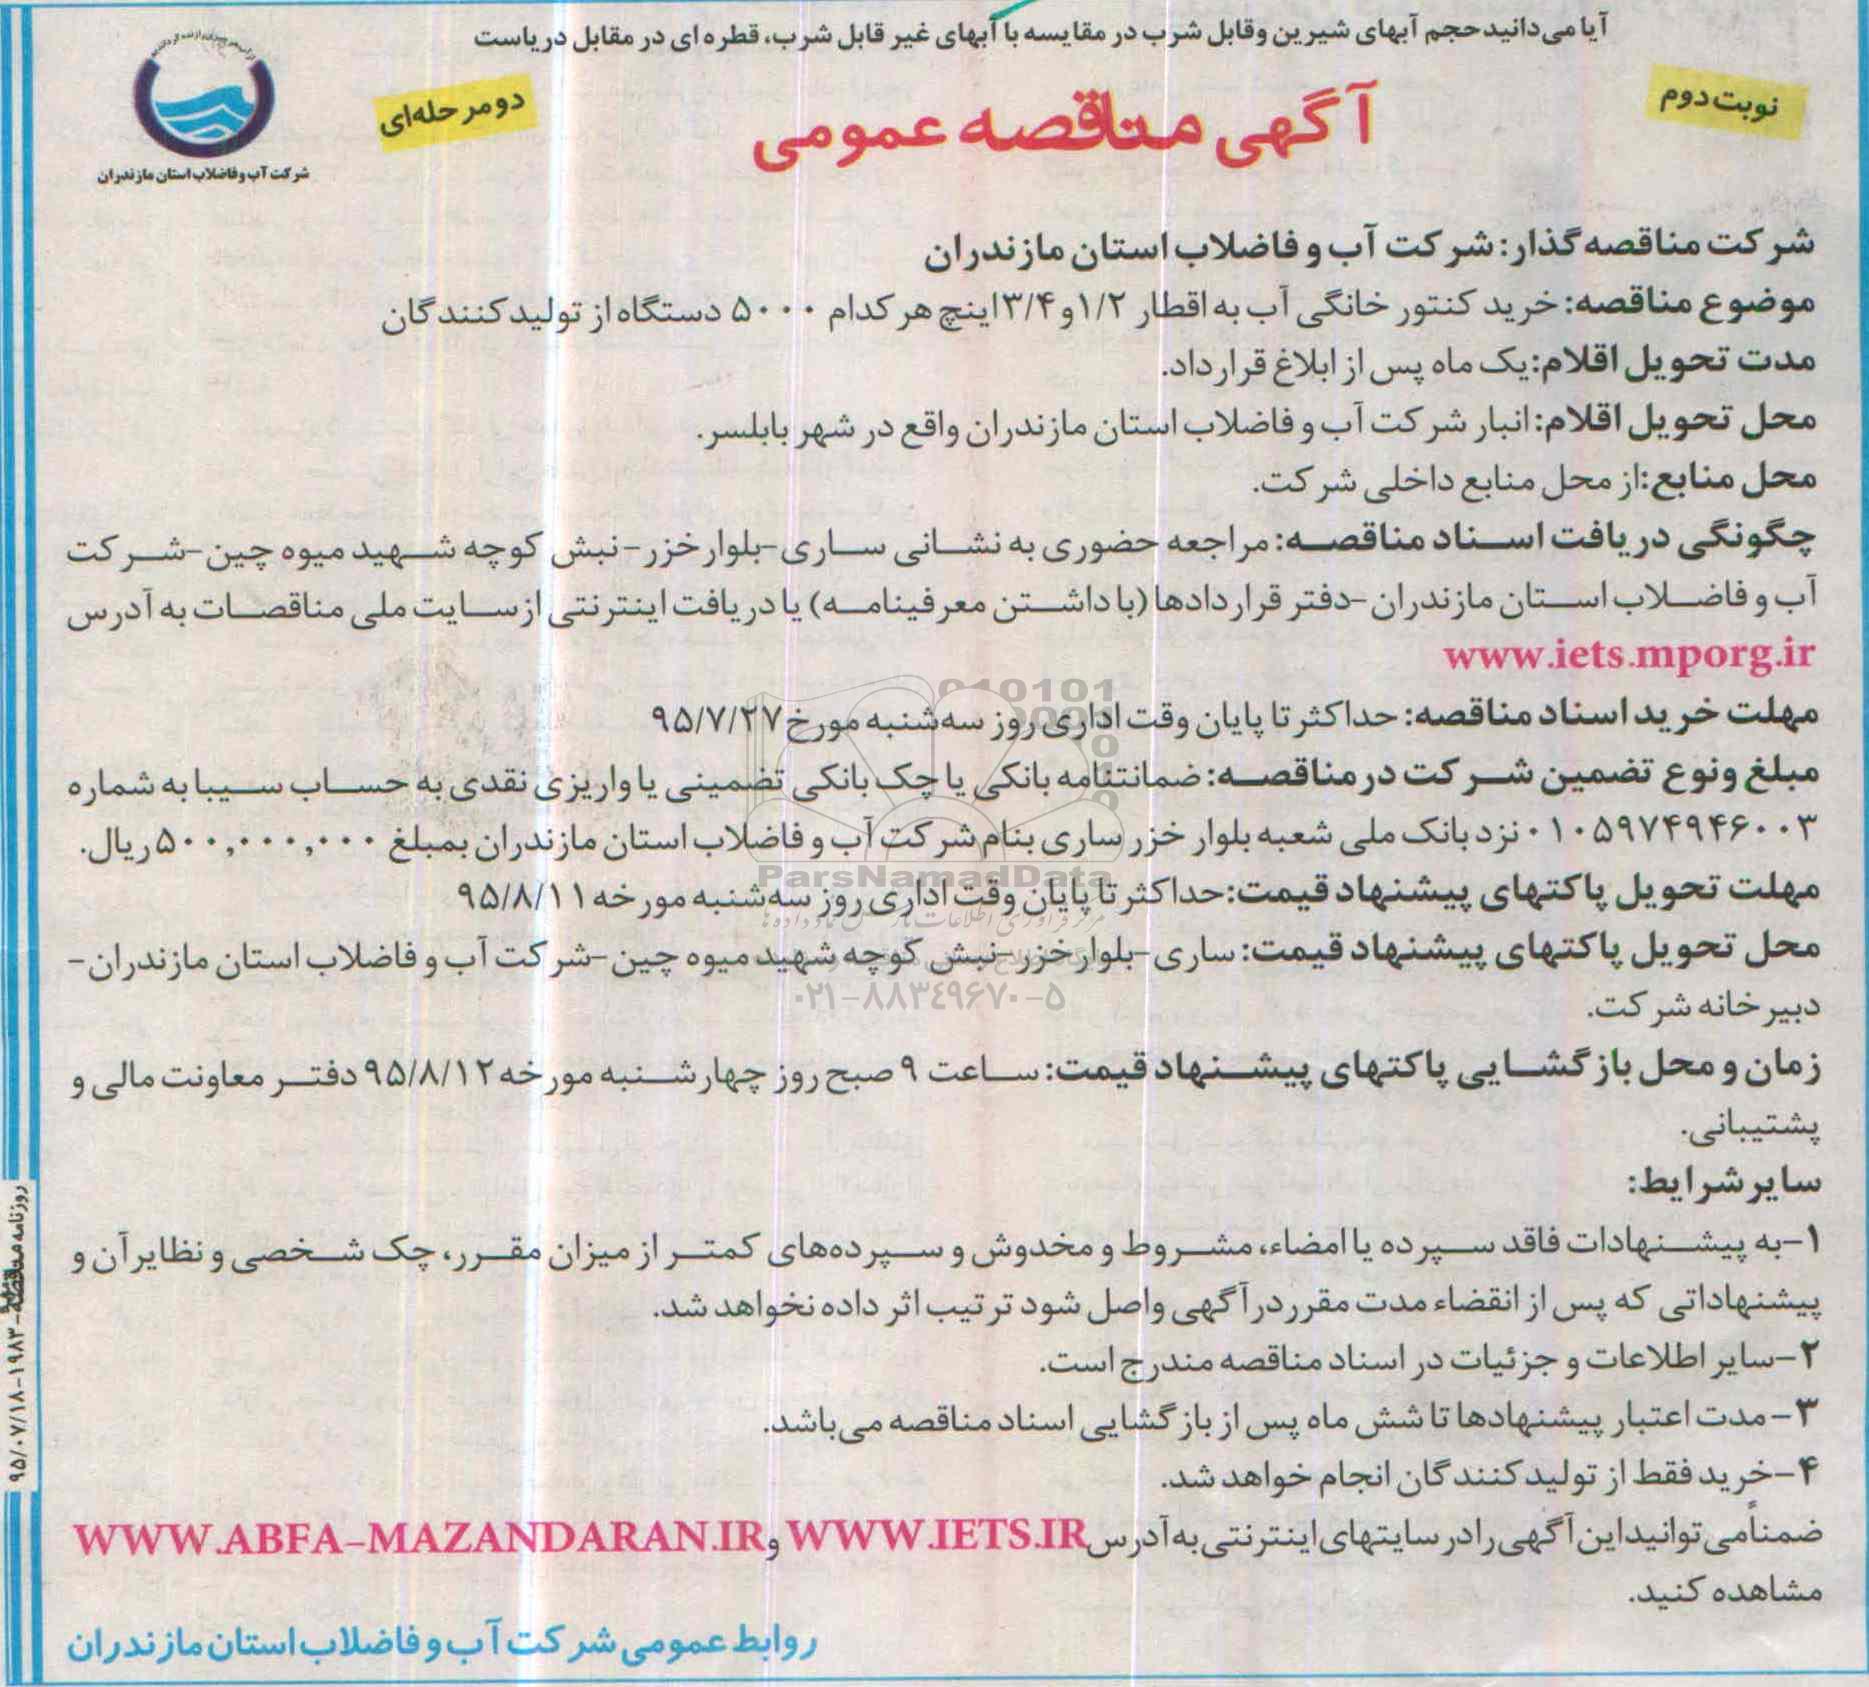 آیا می‌دانید حجم آبهای شیرین وقابل شرب در مقایسه با آبهای غیر قابل شرب، قطره ای در مقابل دریاست
نوبت دوم
آگهی مناقصه عمومی
دو مرحله‌ای
شرکت آب وفاضلاب استان مازندران
شرکت مناقصه گذار: شرکت آب و فاضلاب استان مازندران
موضوع مناقصه: خرید کنتور خانگی آب به اقطار ۱/۲ و ۳/۴ اینچ هر کدام ۵۰۰۰ دستگاه از تولید کنندگان
مدت تحویل اقلام: یک ماه پس از ابلاغ قرارداد.
محل تحویل اقلام: انبار شرکت آب و فاضلاب استان مازندران واقع در شهر بابلسر.
محل منابع: از محل منابع داخلی شرکت.
چگونگی دریافت اسناد مناقصه: مراجعه حضوری به نشانی ساری-بلوار خزر-نبش کوچه شهید میوه چین-شرکت
آب و فاضلاب استان مازندران-دفتر قراردادها (با داشتن معرفینامه) یا دریافت اینترنتی از سایت ملی مناقصات به آدرس
www.iets.mporg.ir
مهلت خرید اسناد مناقصه: حداکثر تا پایان وقت اداری روز سه‌شنبه مورخ ۹۵/۷/۲۷
مبلغ ونوع تضمین شرکت در مناقصه: ضمانتنامه بانکی یا چک بانکی تضمینی یا واریزی نقدی به حساب سیبا به شماره
۰۱۰۵۹۷۴۹۴۶۰۰۳ نزد بانک ملی شعبه بلوار خزر ساری بنام شرکت آب و فاضلاب استان مازندران بمبلغ ۵۰۰,۰۰۰,۰۰۰ ریال.
ParsNamadData
مهلت تحویل پاکتهای پیشنهاد قیمت: حداکثر تا پایان وقت اداری روز سه‌شنبه مورخه ۹۵/۸/۱۱
محل تحویل پاکتهای پیشنهاد قیمت: ساری-بلوار خزر-نبش کوچه شهید میوه چین-شرکت آب و فاضلاب استان مازندران-
۰۲۱-۸۸۳۴۹۶۷۰-۵
دبیرخانه شرکت.
زمان و محل بازگشایی پاکتهای پیشنهاد قیمت: ساعت ۹ صبح روز چهارشنبه مورخه ۹۵/۸/۱۲ دفتر معاونت مالی و
پشتیبانی.
سایر شرایط:
۱-به پیشنهادات فاقد سپرده یا امضاء، مشروط و مخدوش و سپرده‌های کمتر از میزان مقرر، چک شخصی و نظایر آن و
پیشنهاداتی که پس از انقضاء مدت مقرر در آگهی واصل شود ترتیب اثر داده نخواهد شد.
۲-سایر اطلاعات و جزئیات در اسناد مناقصه مندرج است.
۳-مدت اعتبار پیشنهادها تا شش ماه پس از بازگشایی اسناد مناقصه می‌باشد.
۴-خرید فقط از تولید کنندگان انجام خواهد شد.
ضمناً می توانید این آگهی را در سایتهای اینترنتی به آدرس WWW.IETS.IR و WWW.ABFA-MAZANDARAN.IR
مشاهده کنید.
روابط عمومی شرکت آب و فاضلاب استان مازندران
روزنامه مناقصه - ۱۹۸۳-۹۵/۰۷/۱۸